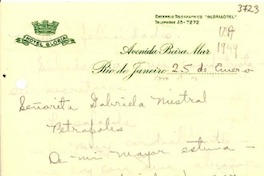 3723
HOTEL GLORIA
ENDEREÇO TELEGRAPHICO "GLORIAOTEL"
TELEPHONE 25-7272
Avenida Beira Mar
1944
Rio de Janeiro 25 de Enero
Señorita Gabriela Mistral
Petrópolis
De mi mayor estima —